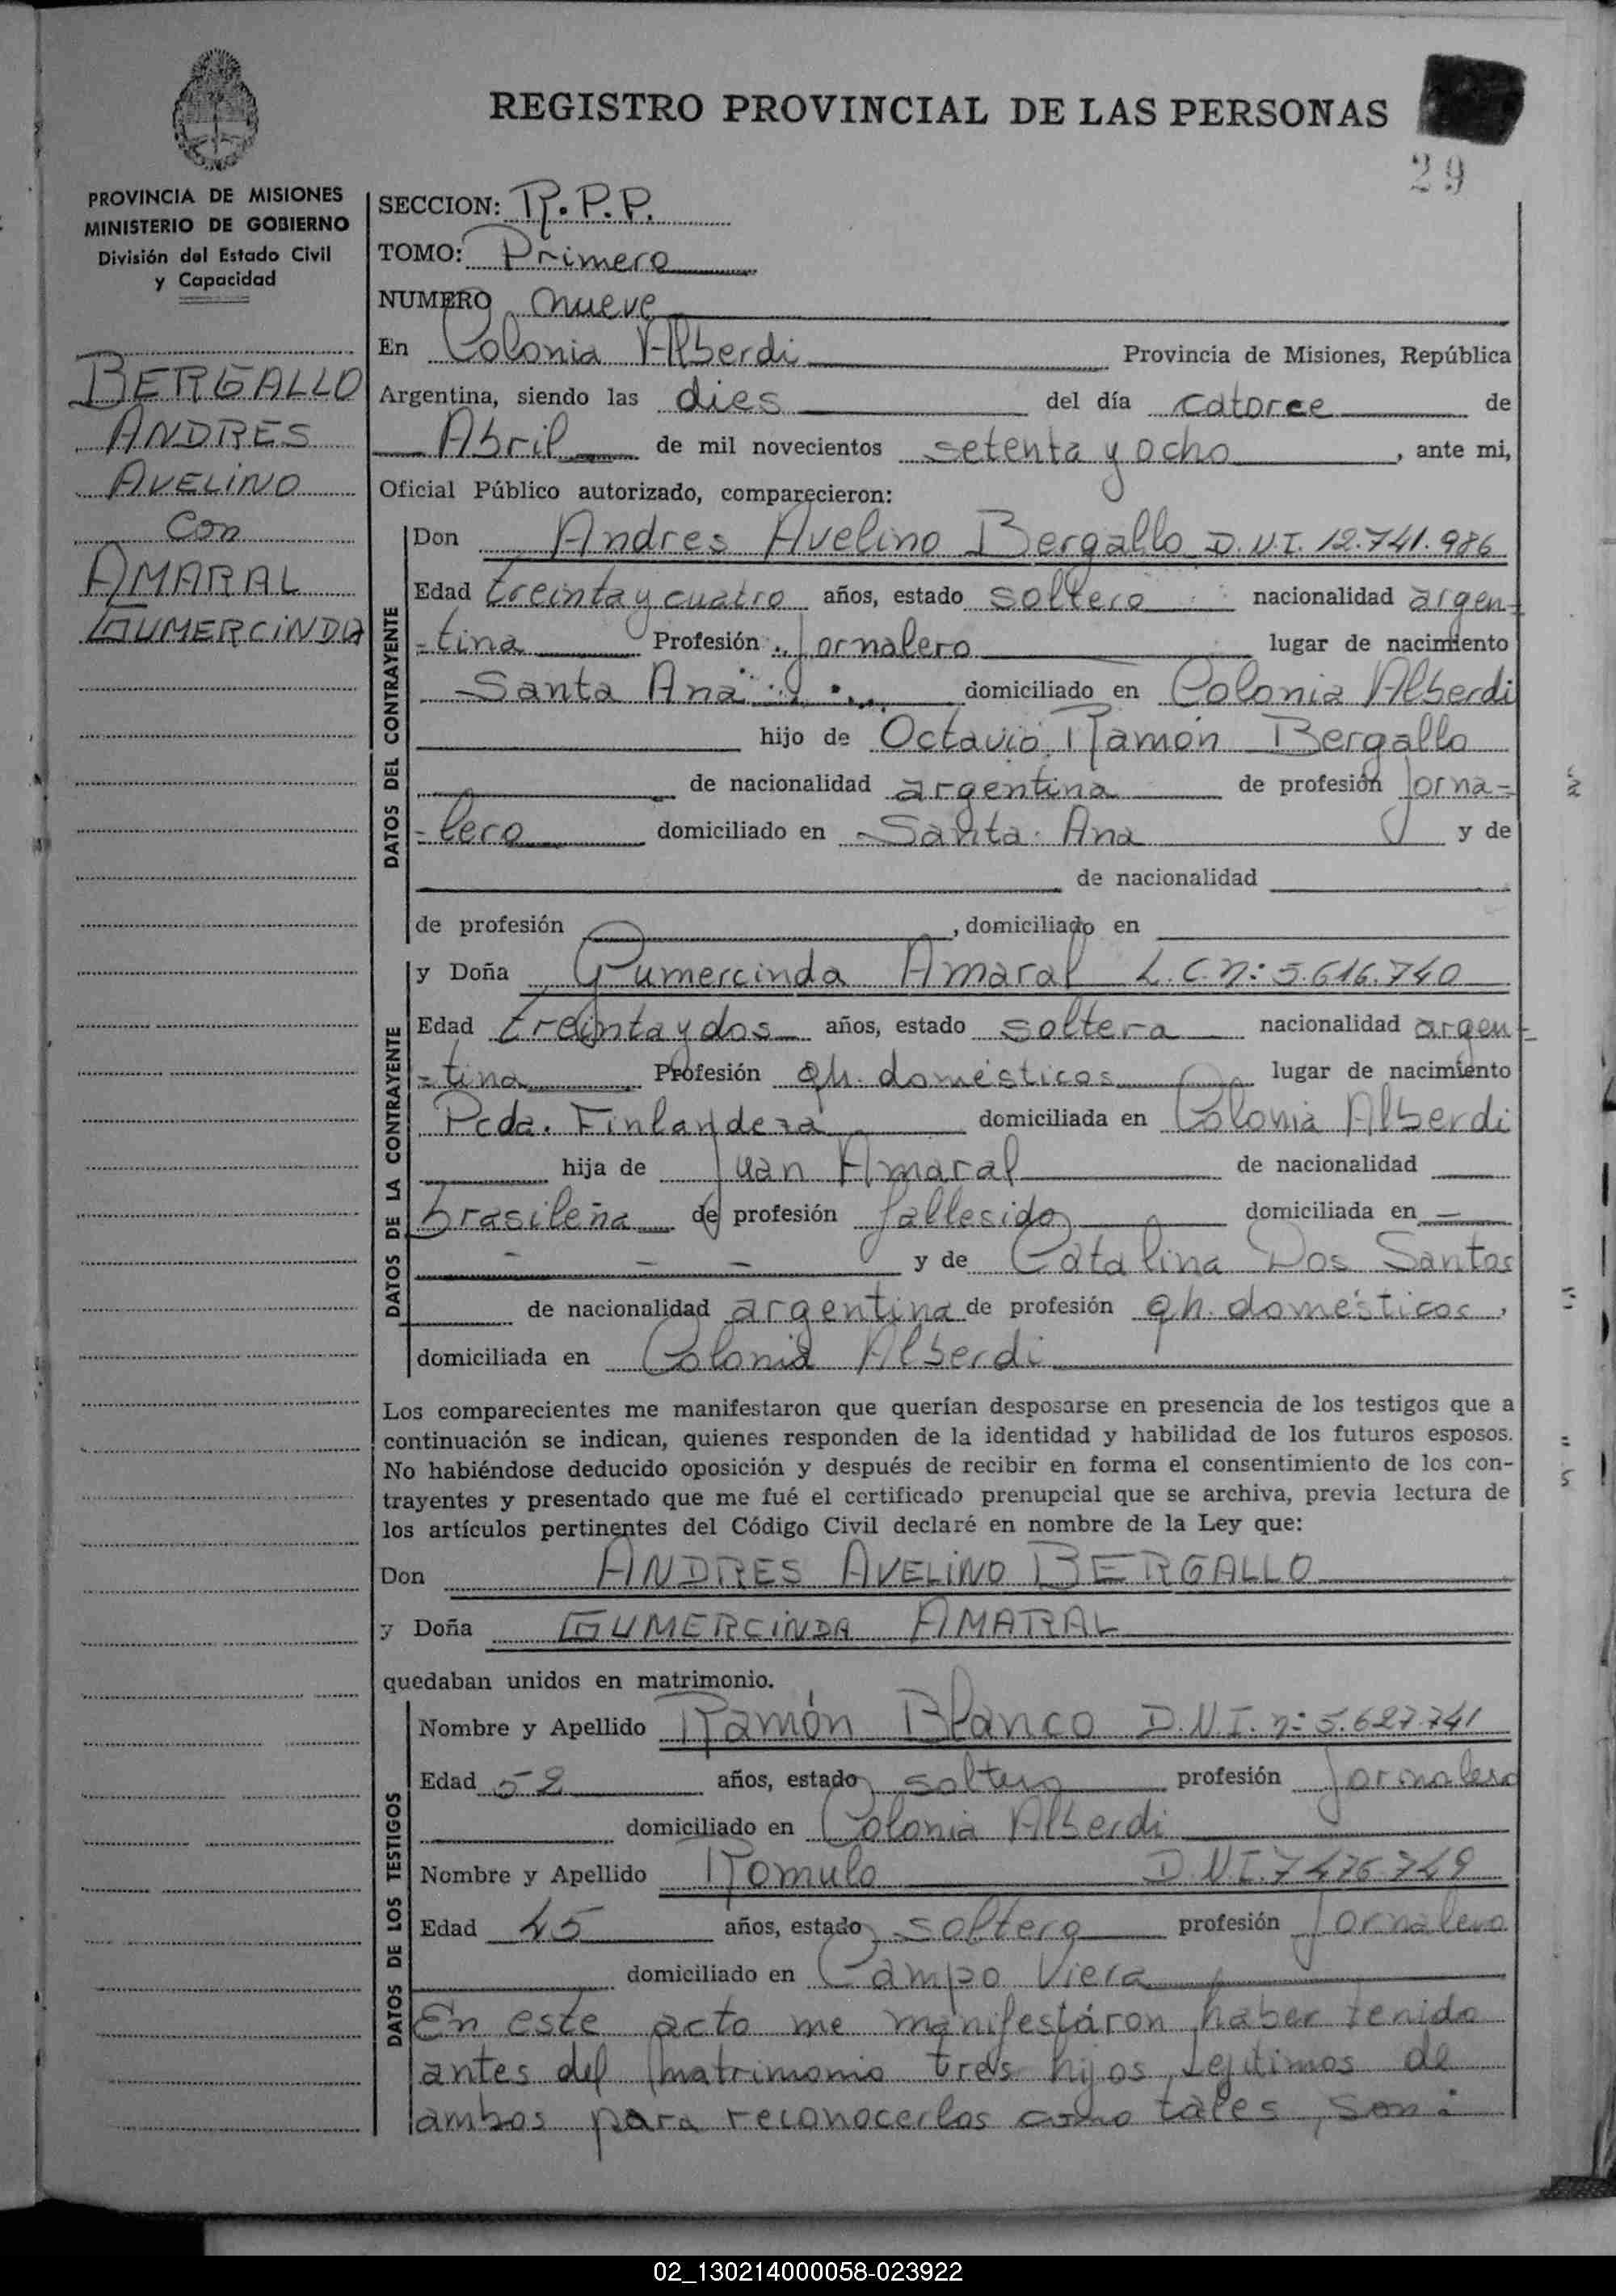 REGISTRO PROVINCIAL DE LAS PERSONAS
29
PROVINCIA DE MISIONES
MINISTERIO DE GOBIERNO
División del Estado Civil
y Capacidad
BERGALLO
ANDRES
AVELINO
Con
AMARAL
GUMERCINDA
SECCION: R.P.P.
TOMO: Primero
NUMERO nueve
En Colonia Alberdi Provincia de Misiones, República
Argentina, siendo las dies del día catorce de
Abril de mil novecientos setenta y ocho, ante mi,
Oficial Público autorizado, comparecieron:
DATOS DEL CONTRAYENTE
Don Andres Avelino Bergallo D.N.I. 12.741.986
Edad treinta y cuatro años, estado soltero nacionalidad argen-
-tina Profesión Jornalero lugar de nacimiento
Santa Ana domiciliado en Colonia Alberdi
hijo de Octavio Ramón Bergallo
de nacionalidad argentina de profesión Jorna-
-lero domiciliado en Santa Ana y de
de nacionalidad
de profesión , domiciliado en
DATOS DE LA CONTRAYENTE
y Doña Gumercinda Amaral L.C.n: 5.616.740
Edad treinta y dos años, estado soltera nacionalidad argen-
-tina Profesión qh. domésticos lugar de nacimiento
Pcda. Finlandeza domiciliada en Colonia Alberdi
hija de Juan Amaral de nacionalidad
brasileña de profesión fallesido domiciliada en —
— — — y de Catalina Dos Santos
de nacionalidad argentina de profesión qh. domésticos,
domiciliada en Colonia Alberdi
Los comparecientes me manifestaron que querían desposarse en presencia de los testigos que a
continuación se indican, quienes responden de la identidad y habilidad de los futuros esposos.
No habiéndose deducido oposición y después de recibir en forma el consentimiento de los con-
trayentes y presentado que me fué el certificado prenupcial que se archiva, previa lectura de
los artículos pertinentes del Código Civil declaré en nombre de la Ley que:
Don ANDRES AVELINO BERGALLO
y Doña GUMERCINDA AMARAL
quedaban unidos en matrimonio.
DATOS DE LOS TESTIGOS
Nombre y Apellido Ramón Blanco D.N.I. n: 5.627.741
Edad 52 años, estado soltero profesión Jornalero
domiciliado en Colonia Alberdi
Nombre y Apellido Romulo D.N.I. 7476749
Edad 45 años, estado soltero profesión Jornalero
domiciliado en Campo Viera
En este acto me manifestáron haber tenido
antes del matrimonio tres hijos Lejitimos de
ambos para reconocerlos como tales, son:
02_130214000058-023922